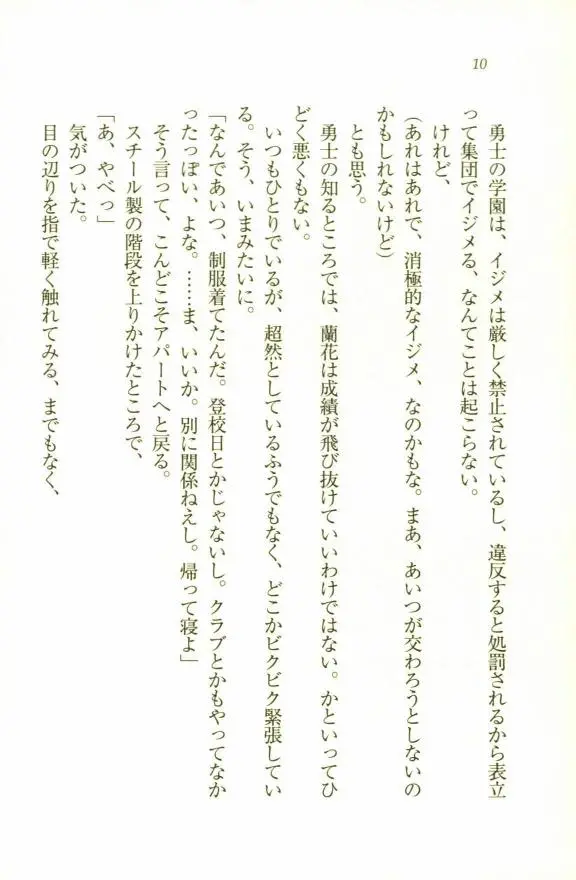 10
勇士の学園は、イジメは厳しく禁止されているし、違反すると処罰されるから表立
って集団でイジメる、なんてことは起こらない。
けれど、
(あれはあれで、消極的なイジメ、なのかもな。まあ、あいつが交わろうとしないの
かもしれないけど)
とも思う。
勇士の知るところでは、蘭花は成績が飛び抜けていいわけではない。かといってひ
どく悪くもない。
いつもひとりでいるが、超然としているふうでもなく、どこかビクビク緊張してい
る。そう、いまみたいに。
「なんであいつ、制服着てたんだ。登校日とかじゃないし。クラブとかもやってなか
ったっぽい、よな。……ま、いいか。別に関係ねえし。帰って寝よ」
そう言って、こんどこそアパートへと戻る。
スチール製の階段を上りかけたところで、
「あ、やべっ」
気がついた。
目の辺りを指で軽く触れてみる、までもなく、